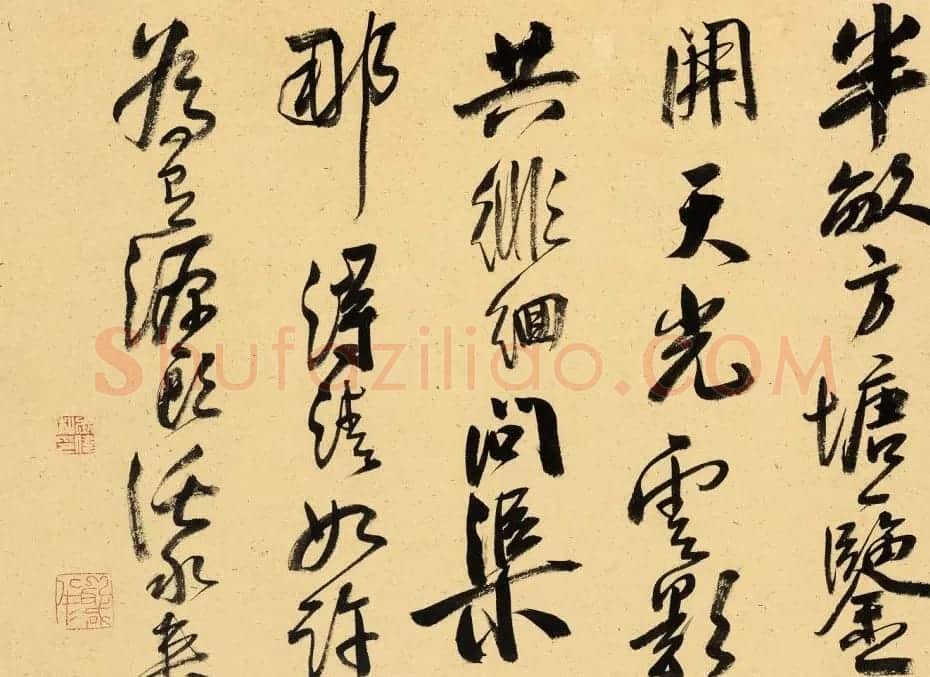 半畝方塘一鑒
開天光雲影
共徘徊問渠
那得清如許
為有源頭活水來
Shufaziliao.COM